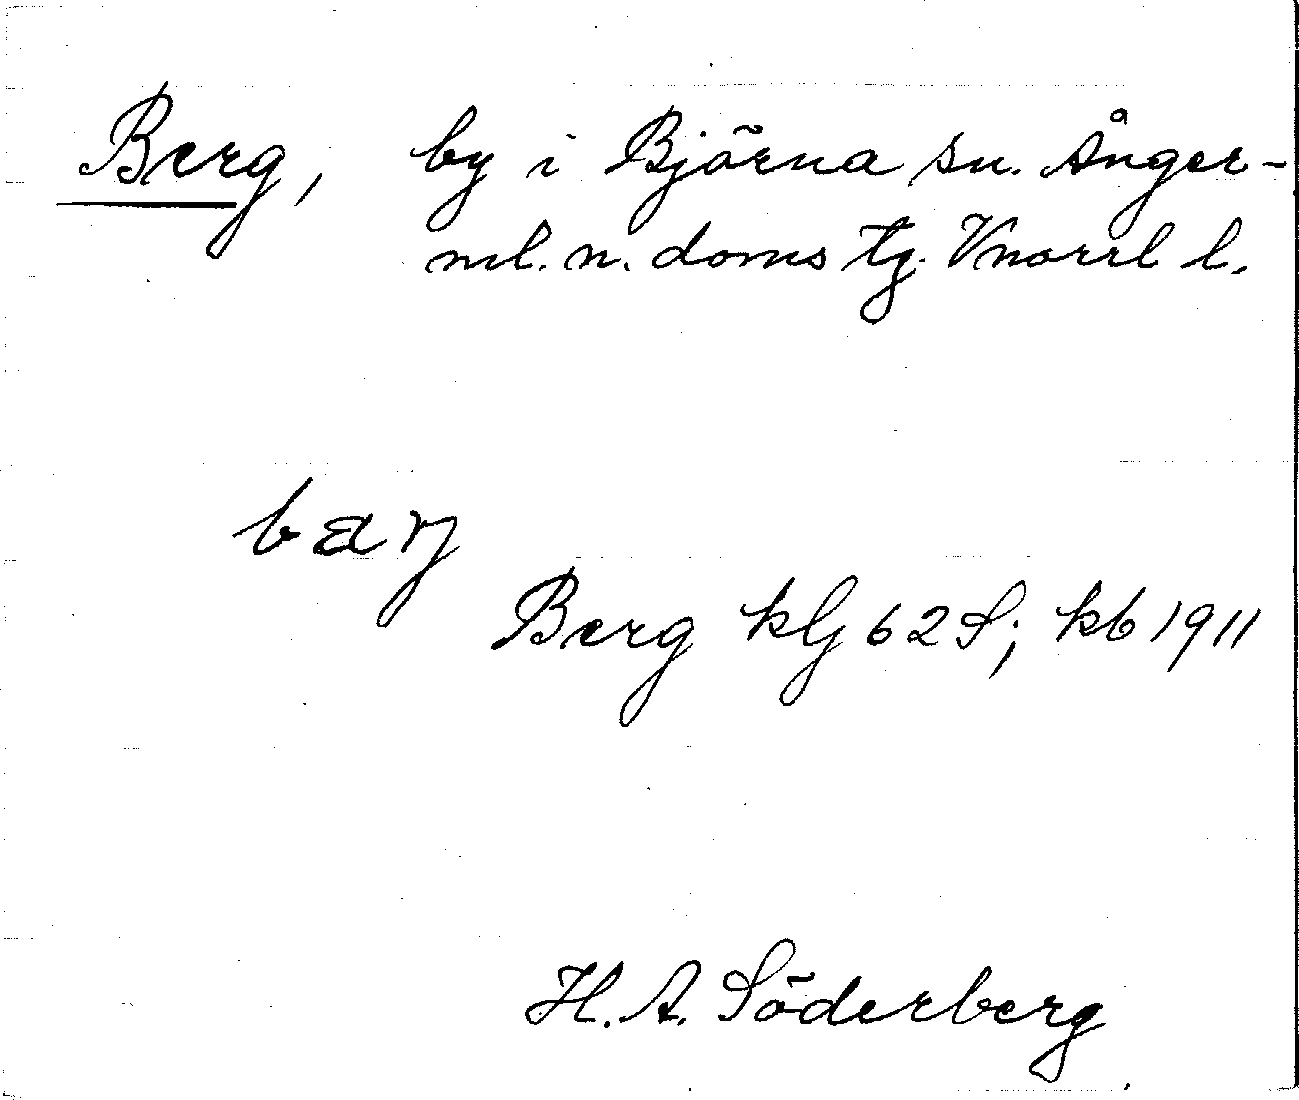 Berg, by i Björna sn. Ånger-
ml. n. doms tg. Vnorrl l.
baꞃ
Berg klj 62 S; kb 1911
H. A. Söderberg